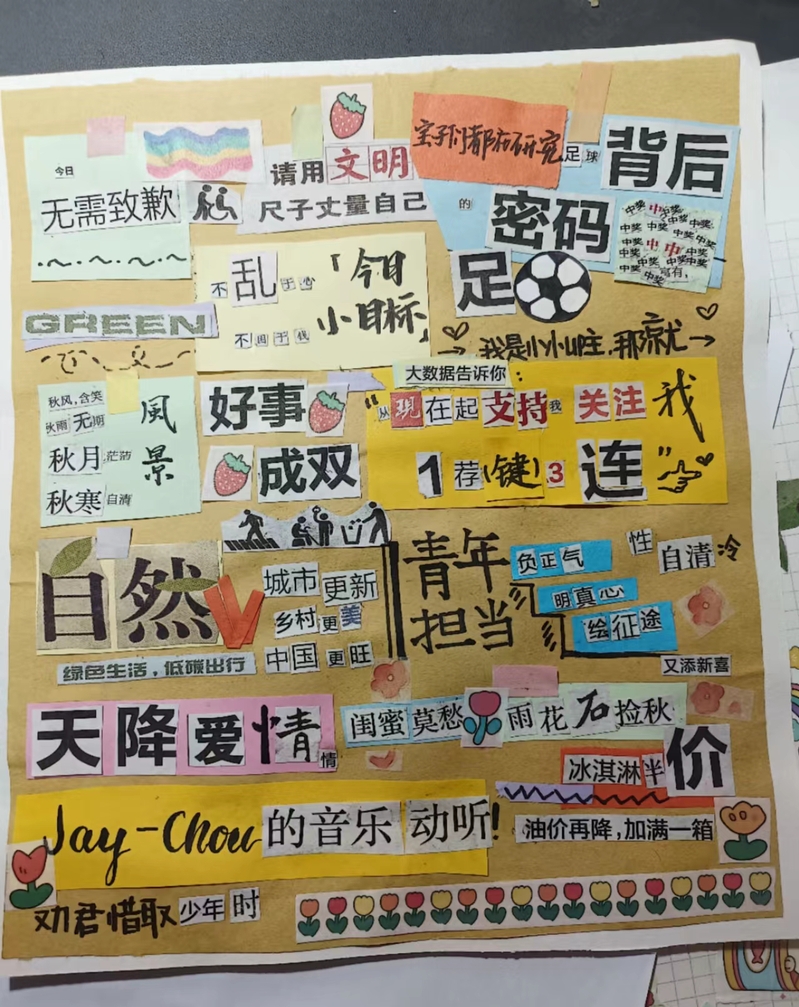 今日
无需致歉
请用文明
尺子丈量自己
宝子们都在研究足球背后
的密码
中奖
中奖
中奖
中奖
中奖
足
不乱于心
不困于钱
「今日
小目标」
GREEN
我是小小山庄，那就
大数据告诉你：
“从现在起支持我关注我
1荐（键）3连”
秋风，含笑
秋雨无期
秋月茫茫
秋寒自清
風
景
好事
成双
自然
城市更新
乡村更美
中国更旺
绿色生活，低碳出行
青年
担当
负正气
明真心
绘征途
性自清冷
又添新喜
天降爱情
情
闺蜜莫愁雨花石捡秋
冰淇淋半价
Jay-Chou的音乐动听！
油价再降，加满一箱
劝君惜取少年时